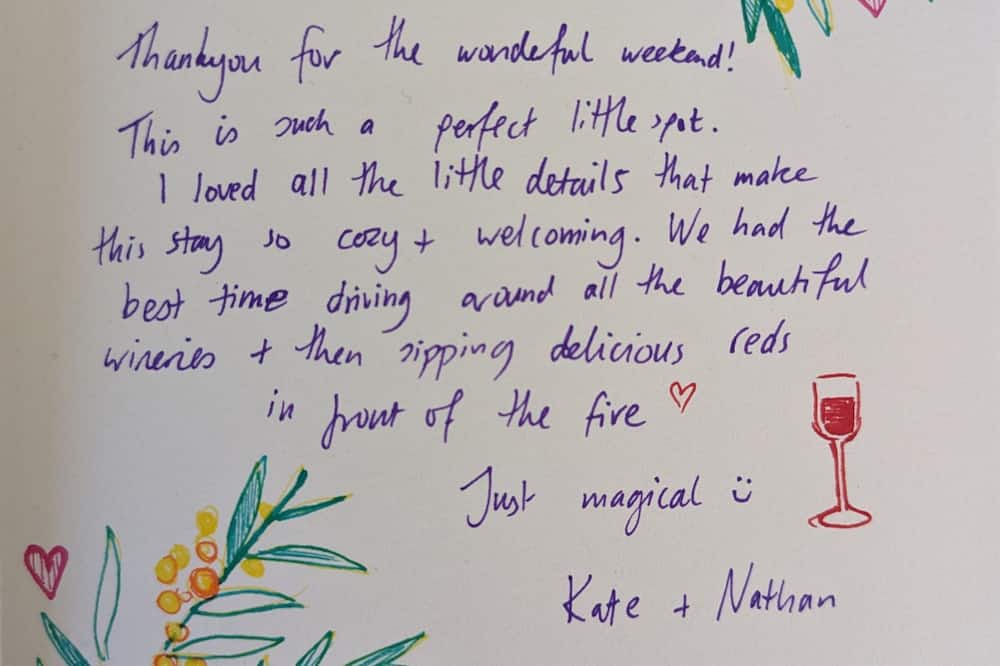 Thankyou for the wonderful weekend!
This is such a perfect little spot.
I loved all the little details that make
this stay so cozy + welcoming. We had the
best time driving around all the beautiful
wineries + then sipping delicious reds
in front of the fire ♡
Just magical ü
Kate + Nathan